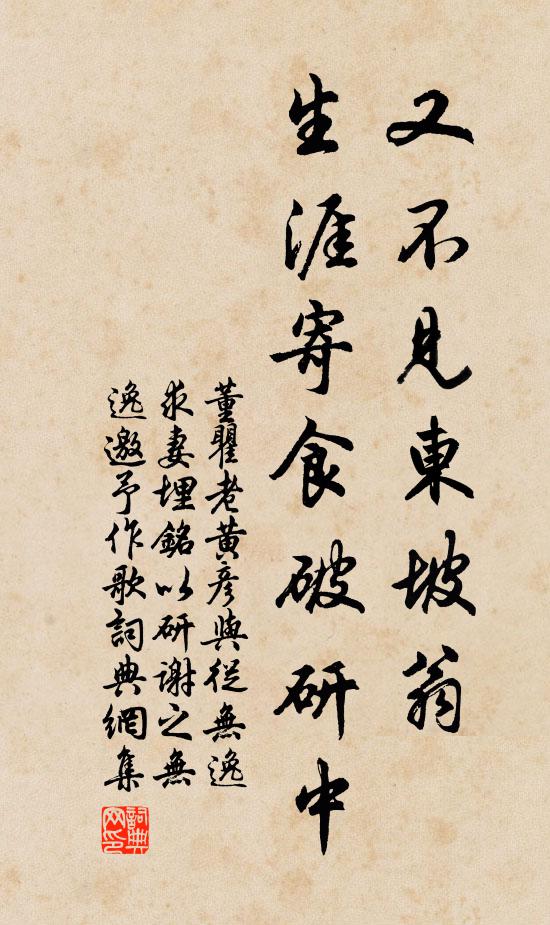 又不見東坡翁
生涯寄食破研中
董瞿老黃彥與從無逸
求妻埋銘以研謝之無
逸邀予作歌詞典網集
詞典
网印